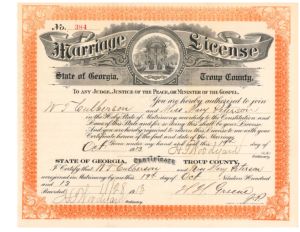 No. 384
Marriage License
State of Georgia, Troup County.
TO ANY JUDGE, JUSTICE OF THE PEACE, OR MINISTER OF THE GOSPEL.
You are hereby authorized to join
W T Culberson and Miss May Peterson
in the Holy State of Matrimony according to the Constitution and
Laws of this State and for so doing this shall be your License.
And you are hereby required to return this License to me with your
Certificate hereon of the fact and date of the Marriage.
this 19th day of
Oct
STATE OF GEORGIA, Certificate TROUP COUNTY.
I Certify that W T Culberson and Miss May Peterson
were joined in Matrimony by me this 19th day of Oct Nineteen Hundred
and 13
Recorded 1913
Greene
J.P.